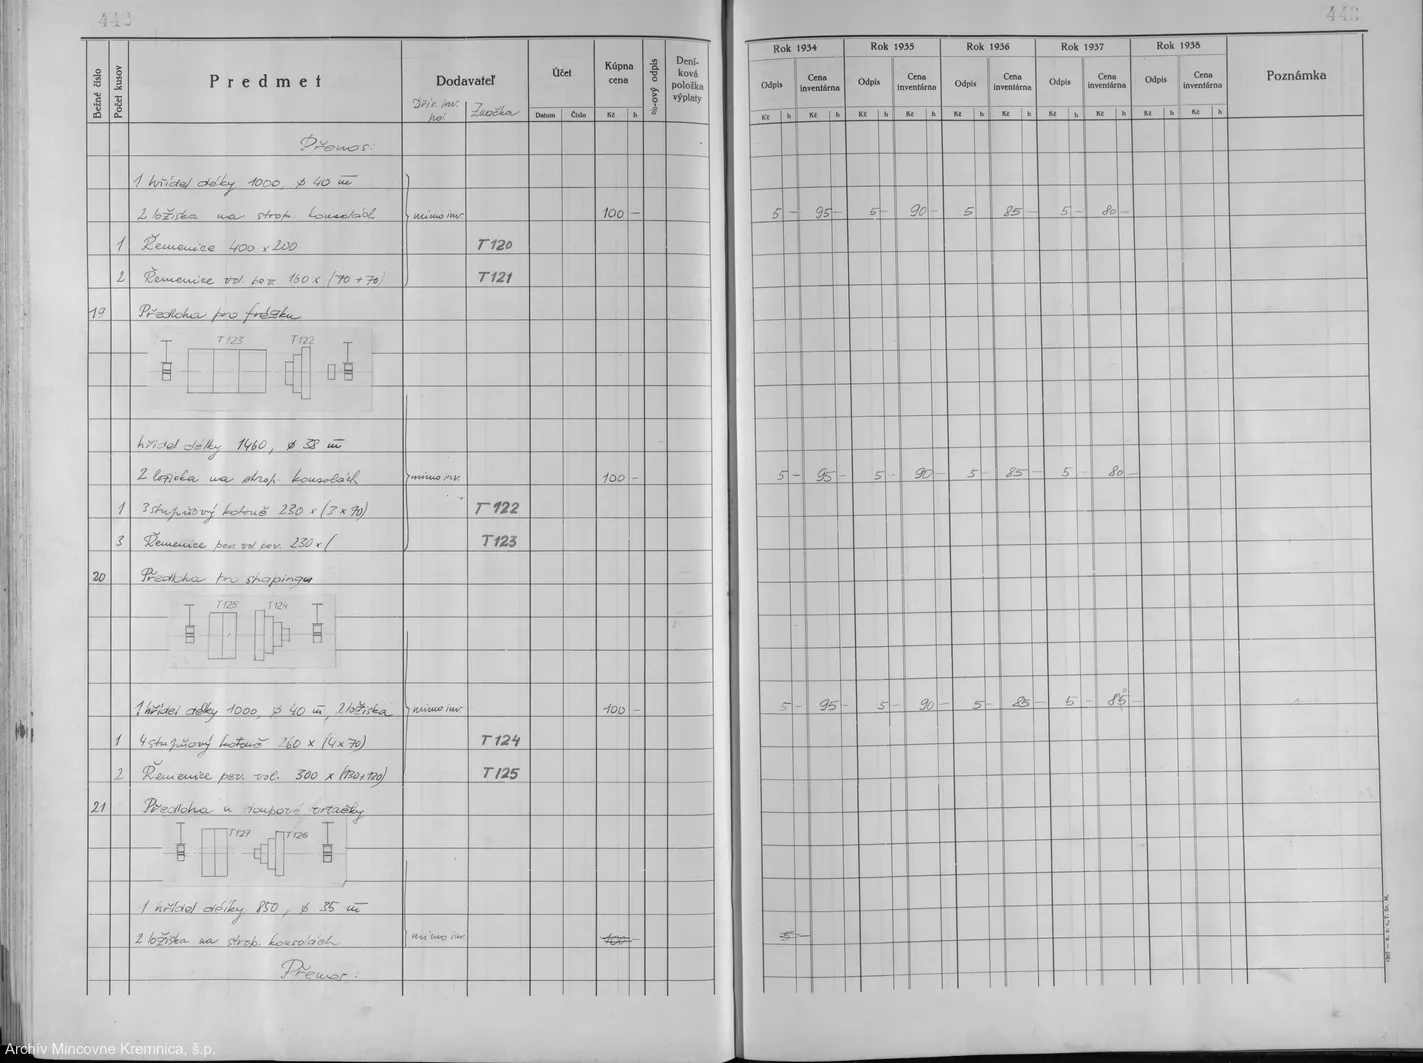 443
443
Bežné číslo
Počet kusov
Predmet
Dodavateľ
Dřív. inv. pol.
Značka
Účet
Datum Číslo
Kúpna cena
Kč h
%-ový odpis
Deníková položka výplaty
Rok 1934 Rok 1935 Rok 1936 Rok 1937 Rok 1938
Odpis Cena inventárna Odpis Cena inventárna Odpis Cena inventárna Odpis Cena inventárna Odpis Cena inventárna
Kč h Kč h Kč h Kč h Kč h Kč h Kč h Kč h Kč h Kč h
Poznámka
Přenos:
1 hřídel délky 1000, ø 40 m̅
2 ložiska na strop. konsolách mimo inv. 100 – 5 – 95 – 5 – 90 – 5 85 – 5 – 80 –
1 Řemenice 400 x 200 T120
2 Řemenice vol. pev. 160 x (70 + 70) T121
19 Předloha pro frézku
T123 T122
hřídel délky 1460, ø 38 m̅
2 ložiska na strop. konsolách mimo inv. 100 – 5 – 95 – 5 – 90 – 5 – 85 – 5 – 80 –
1 3 stupňový kotouč 230 x (3 x 70) T122
3 Řemenice pev. vol. pev. 230 x ( T123
20 Předloha pro shapingu
T125 T124
1 hřídel délky 1000, ø 40 m̅, 2 ložiska mimo inv. 100 – 5 – 95 – 5 – 90 – 5 – 85 – 5 – 85 –
1 4 stupňový kotouč 260 x (4 x 70) T124
2 Řemenice pev. vol. 300 x (130+120) T125
21 Předloha u sloupové vrtačky
T127 T126
1 hřídel délky 850, ø 35 m̅
2 ložiska na strop. konsolách mimo inv. 100 – 5 –
Přenos:
Archív Mincovne Kremnica, š.p.